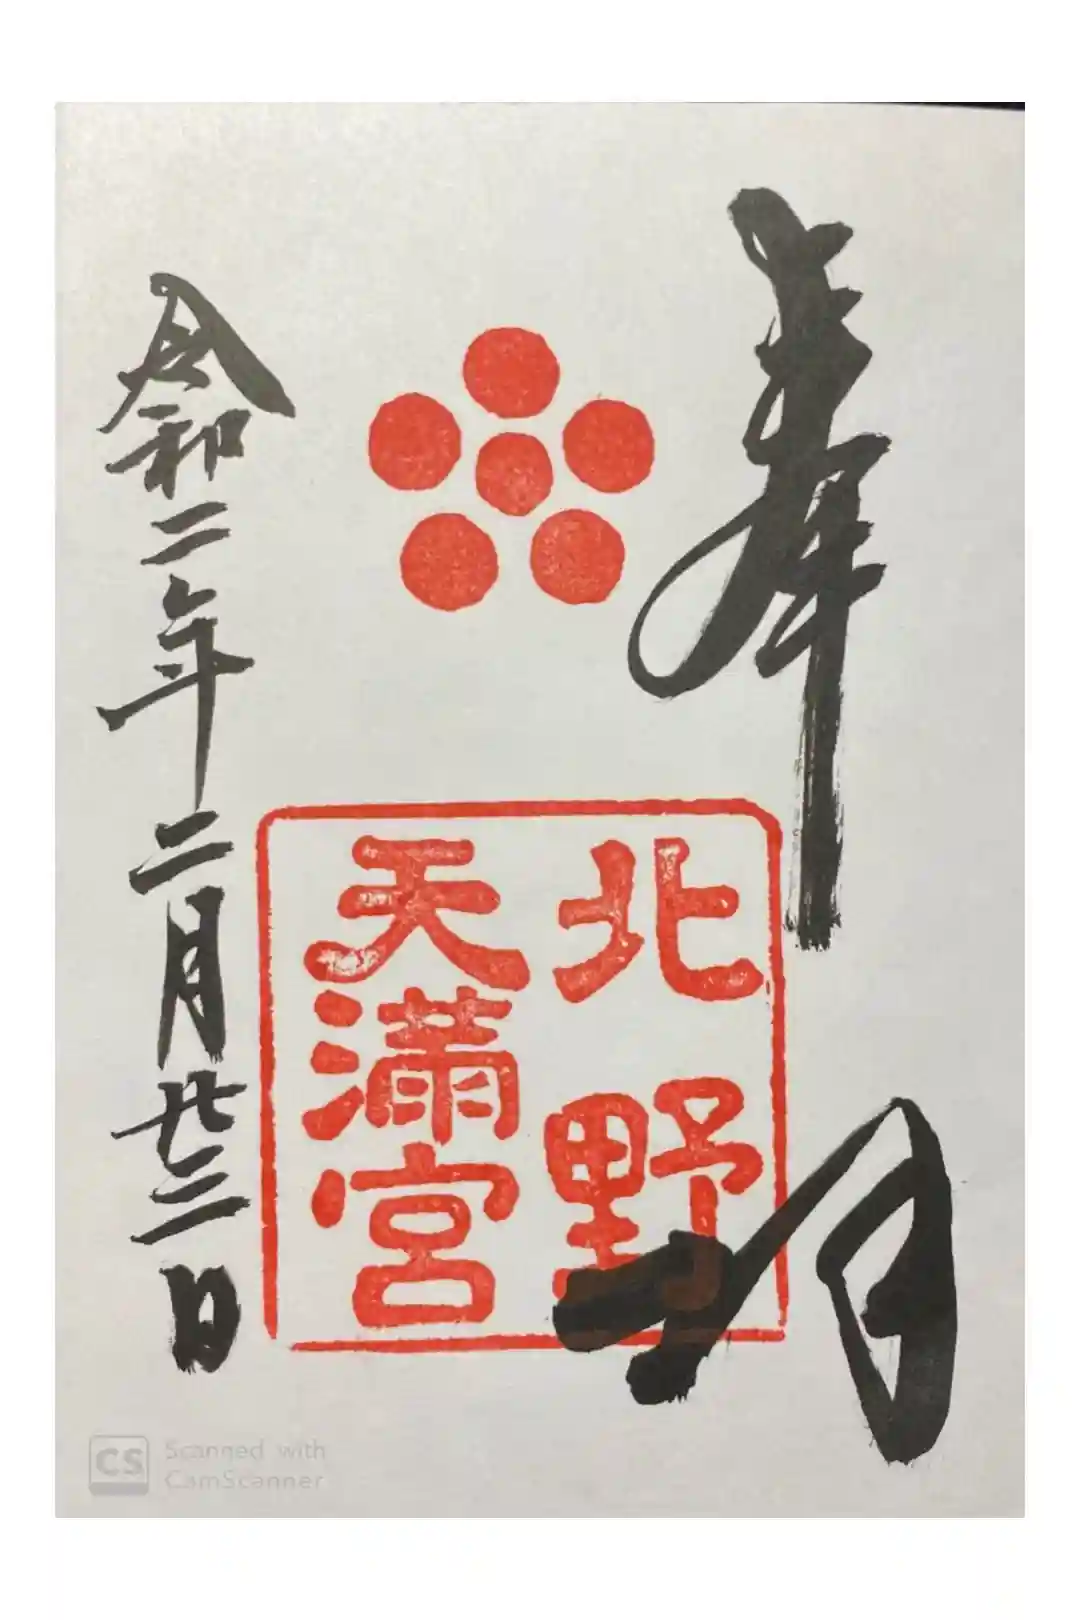 奉拝
北野
天満宮
令和二年二月廿三日
Scanned with
CamScanner
CS